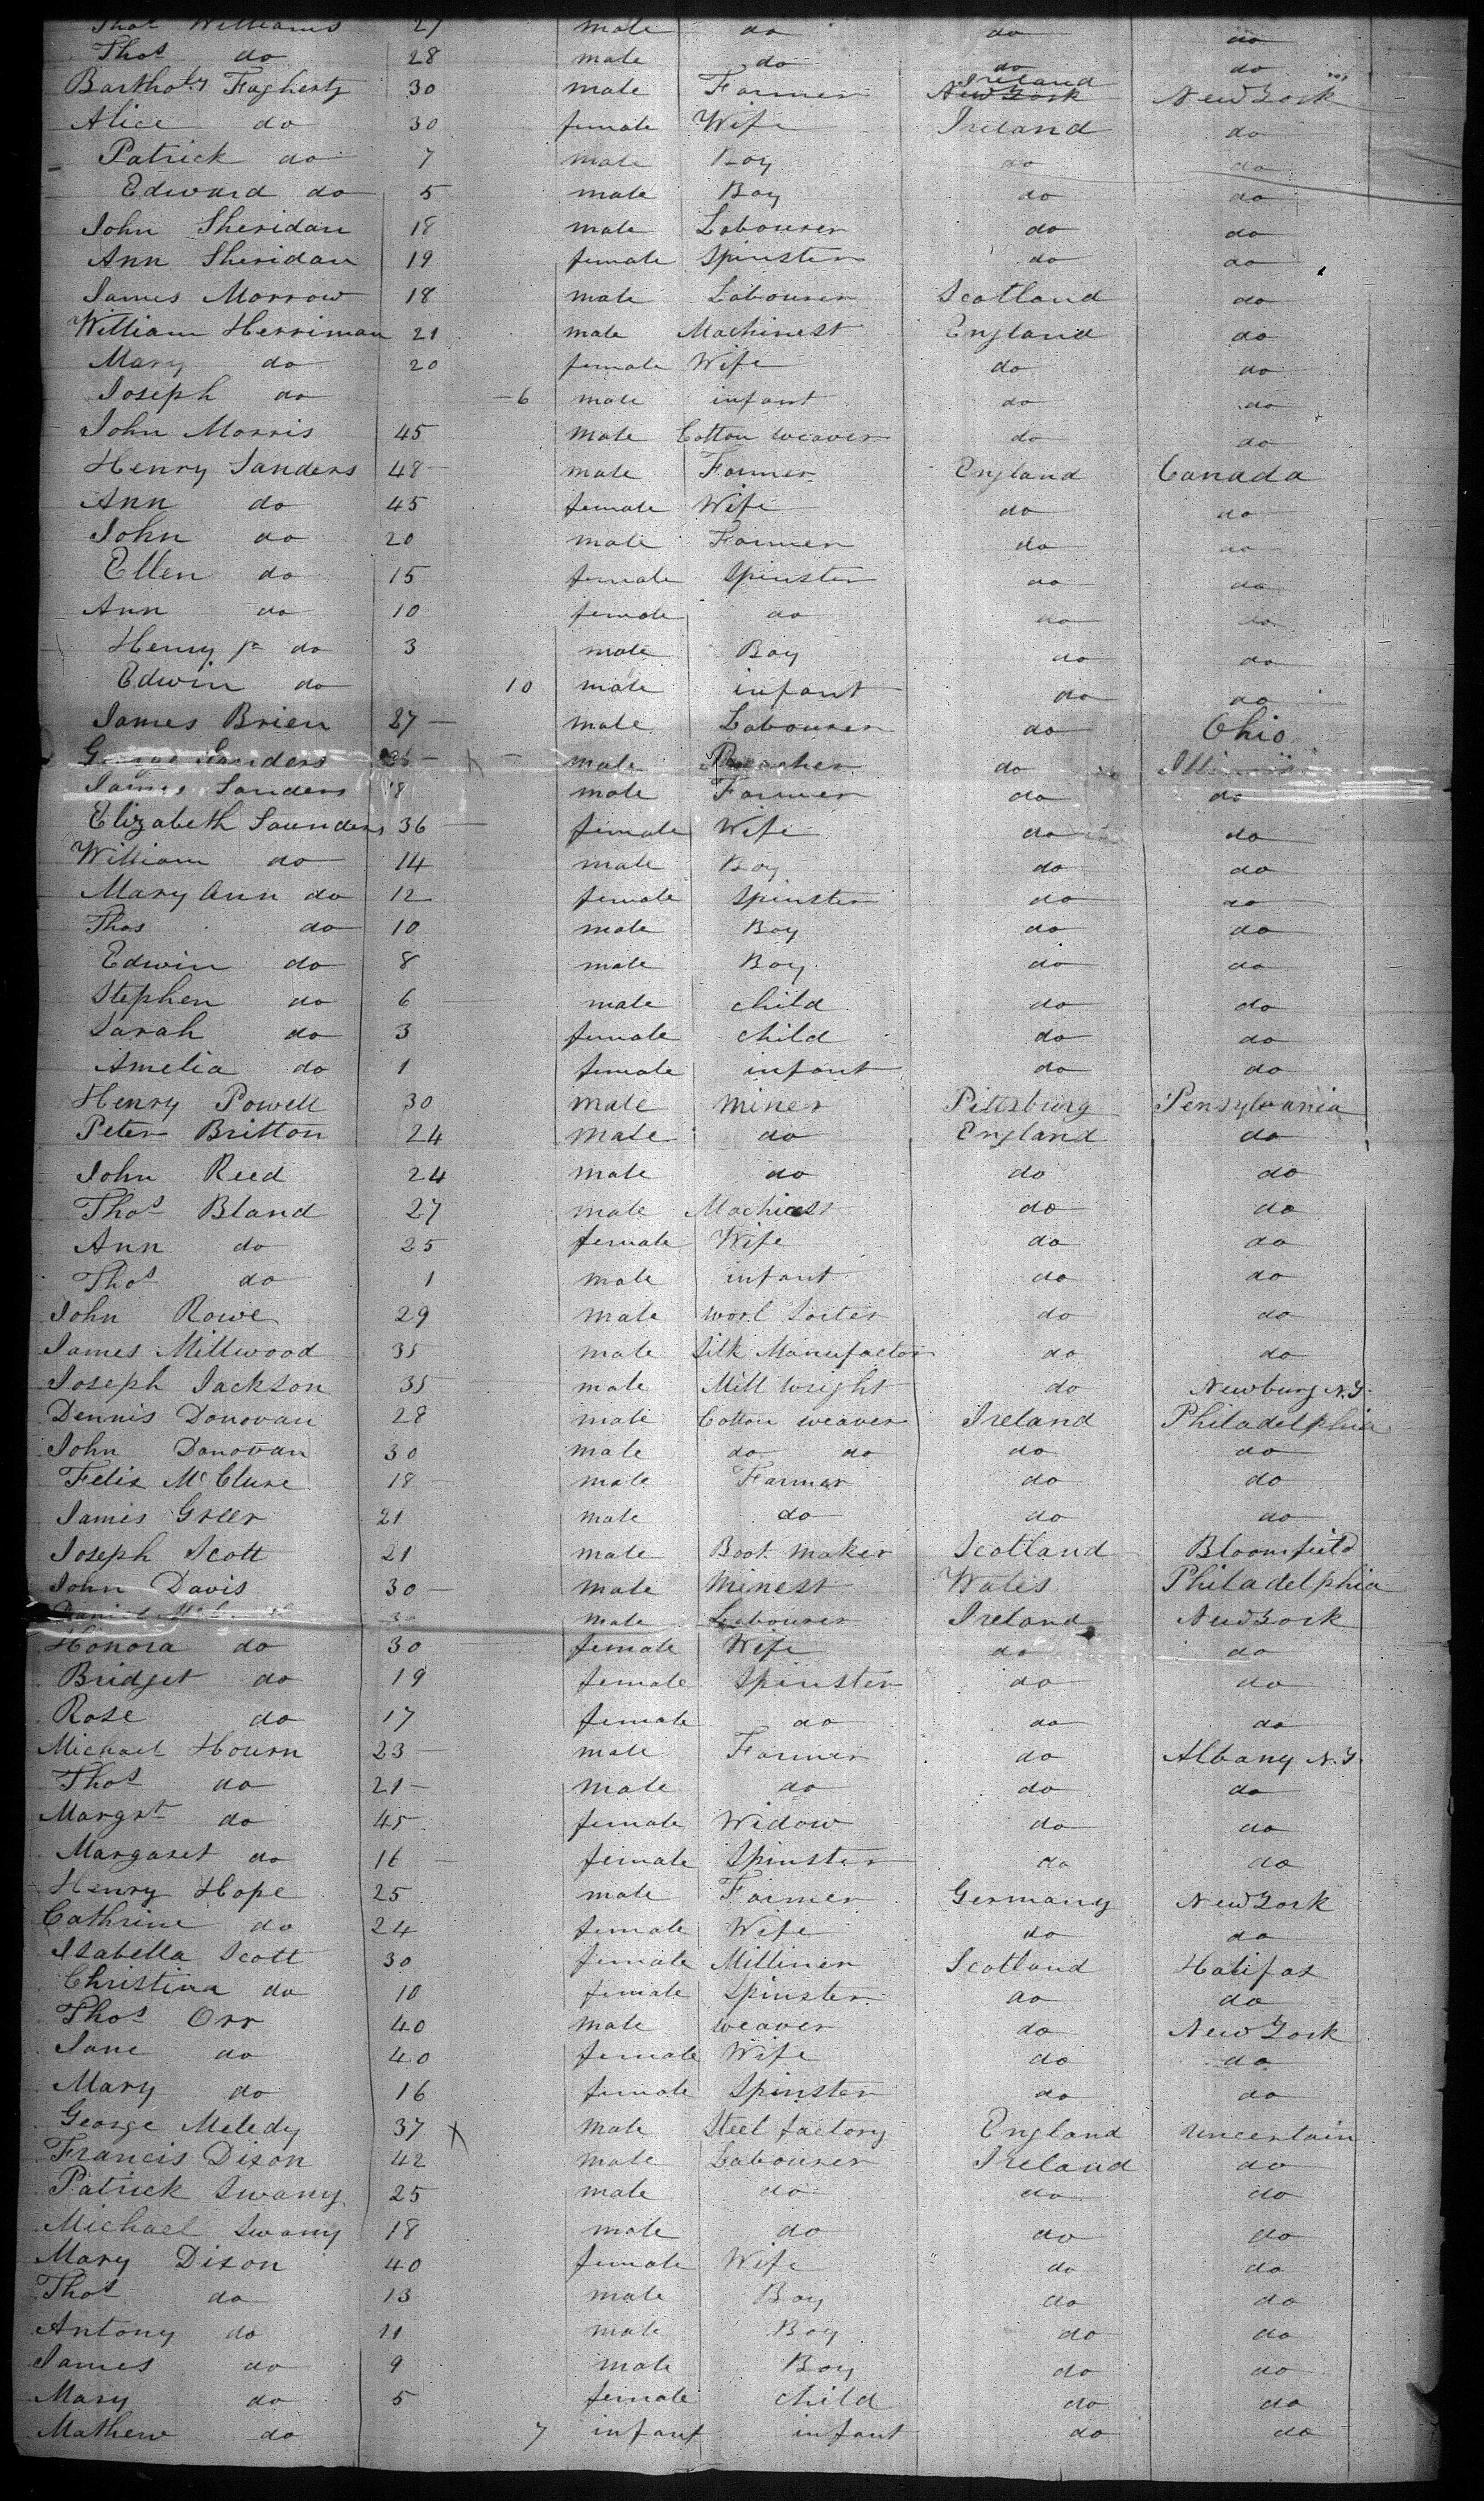 Thos Williams 27 male do do do
Thos do 28 male do do do
Bartholy Fagherty 30 male Farmer Ireland New York New York
Alice do 30 female Wife Ireland do
Patrick do 7 male Boy do do
Edward do 5 male Boy do do
John Sheridan 18 male Labourer do do
Ann Sheridan 19 female Spinster do do
James Morrow 18 male Labourer Scotland do
William Herriman 21 male Machinest England do
Mary do 20 female Wife do do
Joseph do 6 male infant do do
John Morris 45 male Cotton weaver do do
Henry Sanders 48 male Farmer England Canada
Ann do 45 female Wife do do
John do 20 male Farmer do do
Ellen do 15 female Spinster do do
Ann do 10 female do do do
Henry Jr do 3 male Boy do do
Edwin do 10 male infant do do
James Brien 27 male Labourer do Ohio
George Sanders 36 male Preacher do Illinois
James Sanders 18 male Farmer do do
Elizabeth Saunders 36 female Wife do do
William do 14 male Boy do do
Mary Ann do 12 female Spinster do do
Thos do 10 male Boy do do
Edwin do 8 male Boy do do
Stephen do 6 male child do do
Sarah do 3 female child do do
Amelia do 1 female infant do do
Henry Powell 30 male miner Pittsburg Pensylvania
Peter Britton 24 male do England do
John Reed 24 male do do do
Thos Bland 27 male Machinest do do
Ann do 25 female Wife do do
Thos do 1 male infant do do
John Rowe 29 male wool Sorter do do
James Millwood 35 male Silk Manufactor do do
Joseph Jackson 35 male Mill wright do Newburg N.Y.
Dennis Donovan 28 male Cotton weaver Ireland Philadelphia
John Donovan 30 male do do do do
Felix McClure 18 male Farmer do do
James Greer 21 male do do do
Joseph Scott 21 male Boot maker Scotland Bloomfield
John Davis 30 male Minest Wales Philadelphia
Daniel 30 male Labourer Ireland New York
Honora do 30 female Wife do do
Bridget do 19 female Spinster do do
Rose do 17 female do do do
Michael Hourn 23 male Farmer do Albany N.Y.
Thos do 21 male do do do
Margrt do 45 female Widow do do
Margaret do 16 female Spinster do do
Henry Hope 25 male Farmer Germany New York
Cathrine do 24 female Wife do do
Isabella Scott 30 female Milliner Scotland Halifax
Christina do 10 female Spinster do do
Thos Orr 40 male weaver do New York
Jane do 40 female Wife do do
Mary do 16 female Spinster do do
George Meledy 37 x male Steel factory England uncertain
Francis Dixon 42 male Labourer Ireland do
Patrick Swany 25 male do do do
Michael Swany 18 male do do do
Mary Dixon 40 female Wife do do
Thos do 13 male Boy do do
Antony do 11 male Boy do do
James do 9 male Boy do do
Mary do 5 female child do do
Mathew do 7 infant infant do do